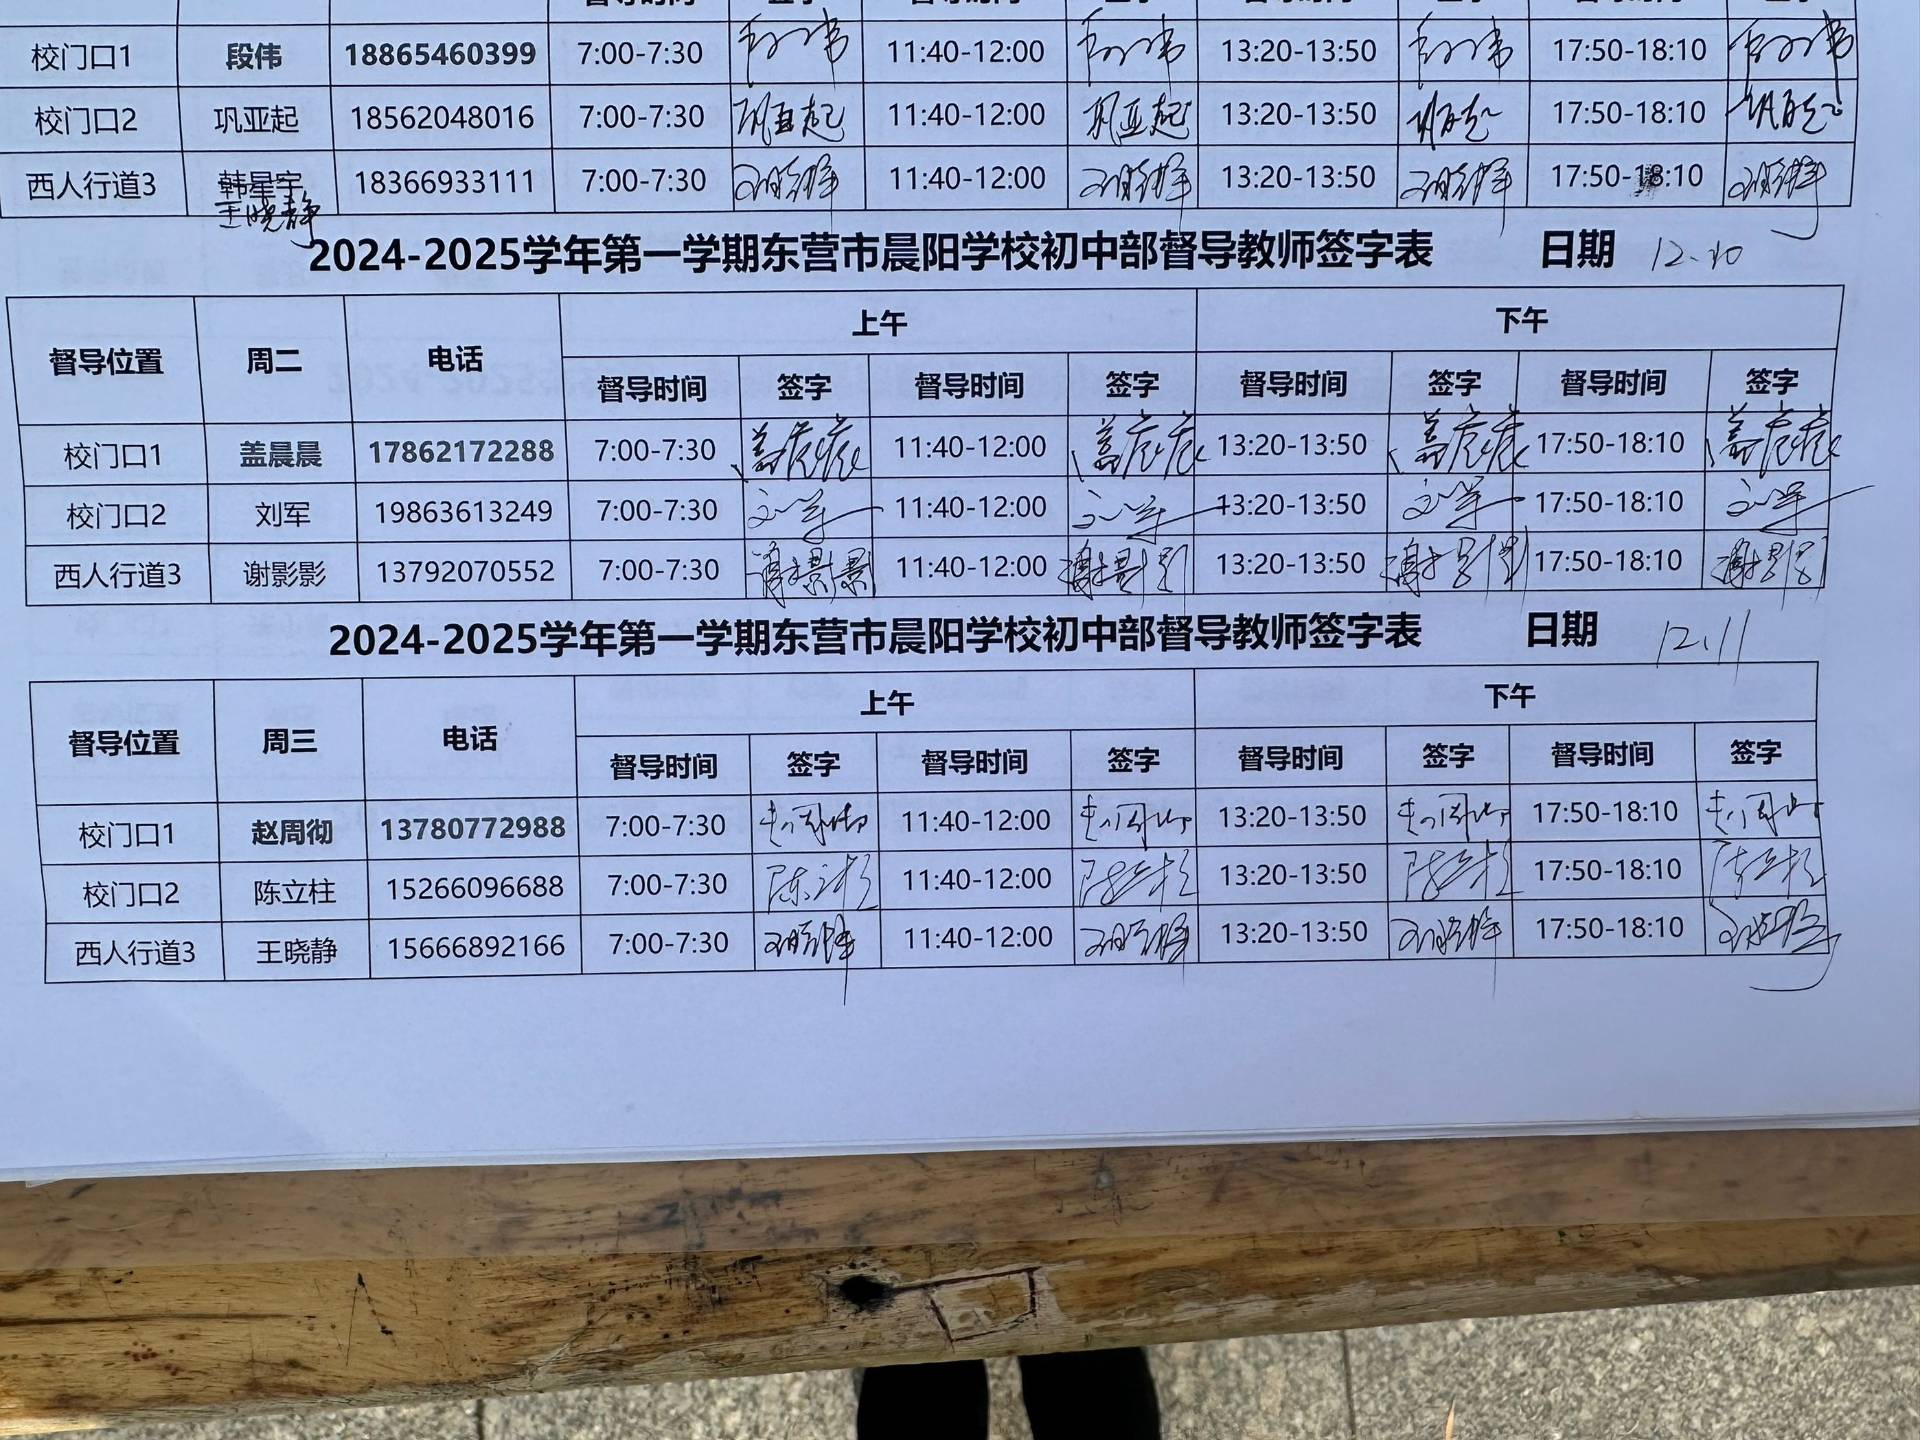 督导时间 签字 督导时间 签字 督导时间 签字 督导时间 签字
校门口1 段伟 18865460399 7:00-7:30 段伟 11:40-12:00 段伟 13:20-13:50 段伟 17:50-18:10 段伟
校门口2 巩亚起 18562048016 7:00-7:30 巩亚起 11:40-12:00 巩亚起 13:20-13:50 巩亚起 17:50-18:10 巩亚起
西人行道3 韩星宇 18366933111 7:00-7:30 11:40-12:00 13:20-13:50 17:50-18:10
王晓静
2024-2025学年第一学期东营市晨阳学校初中部督导教师签字表 日期 12.10
督导位置 周二 电话 上午 下午
督导时间 签字 督导时间 签字 督导时间 签字 督导时间 签字
校门口1 盖晨晨 17862172288 7:00-7:30 盖晨晨 11:40-12:00 盖晨晨 13:20-13:50 盖晨晨 17:50-18:10 盖晨晨
校门口2 刘军 19863613249 7:00-7:30 刘军 11:40-12:00 刘军 13:20-13:50 刘军 17:50-18:10 刘军
西人行道3 谢影影 13792070552 7:00-7:30 谢影影 11:40-12:00 谢影影 13:20-13:50 谢影影 17:50-18:10 谢影影
2024-2025学年第一学期东营市晨阳学校初中部督导教师签字表 日期 12.11
督导位置 周三 电话 上午 下午
督导时间 签字 督导时间 签字 督导时间 签字 督导时间 签字
校门口1 赵周彻 13780772988 7:00-7:30 赵周彻 11:40-12:00 赵周彻 13:20-13:50 赵周彻 17:50-18:10 赵周彻
校门口2 陈立柱 15266096688 7:00-7:30 陈立柱 11:40-12:00 陈立柱 13:20-13:50 陈立柱 17:50-18:10 陈立柱
西人行道3 王晓静 15666892166 7:00-7:30 11:40-12:00 13:20-13:50 17:50-18:10